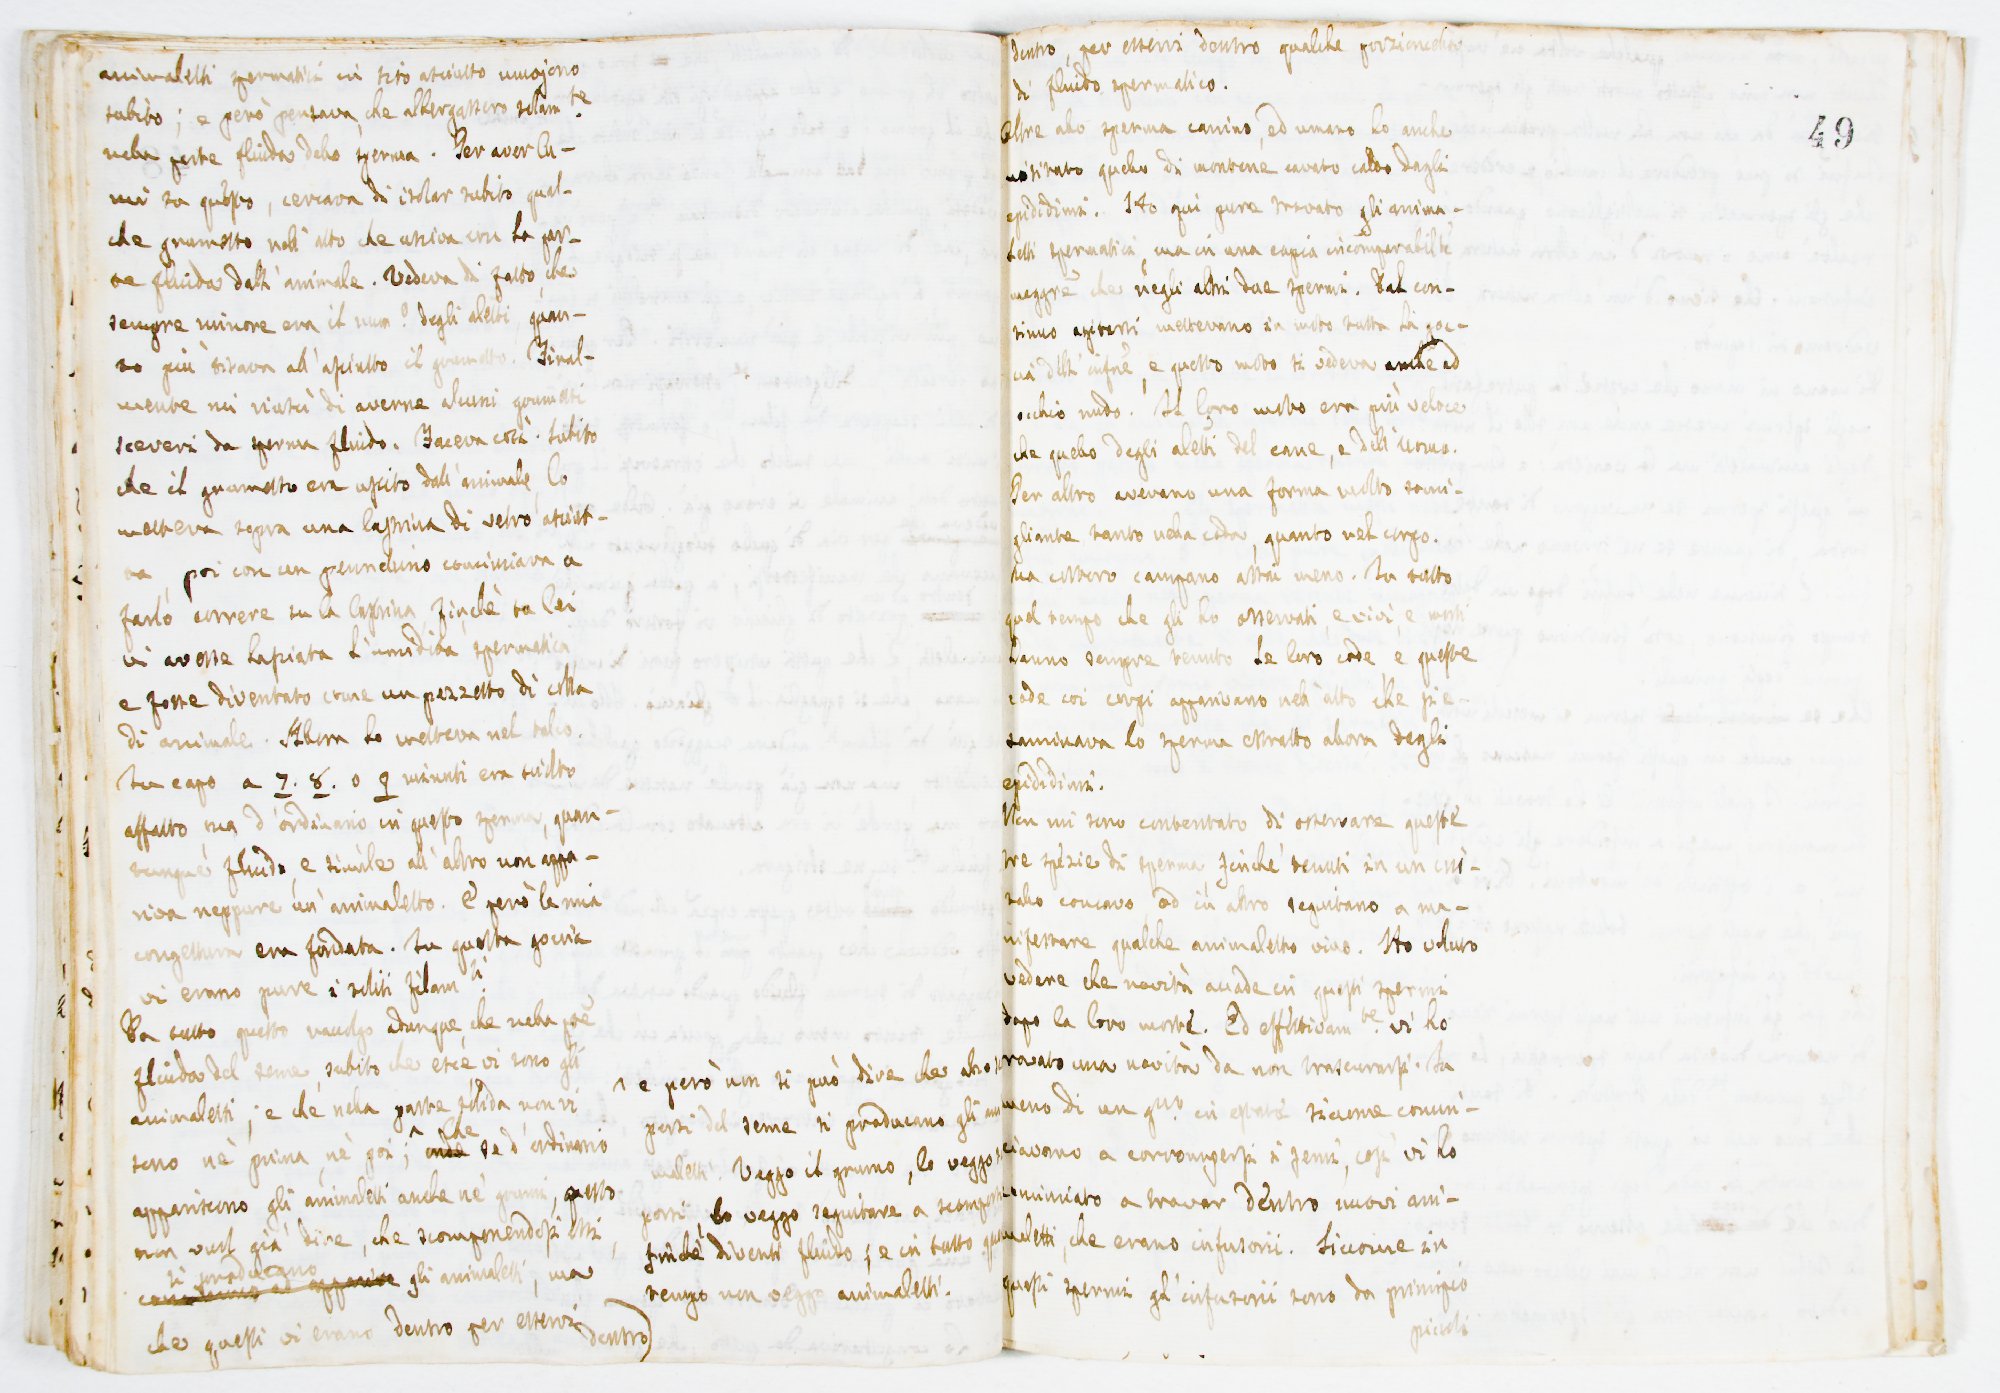 animaletti spermatici in sito asciutto muojono
subito; e però pensava, che albergassero solam.te
nella parte fluida dello sperma. Per aver lu-
mi su questo, cercava di isolar subito qual-
che grumetto nell'atto che usciva con la par-
te fluida dall'animale. Vedeva di fatto, che
sempre minore era il num.o degli aletti, quan-
to più tirava all'asciutto il grumetto. Final-
mente mi riuscì di averne alcuni grumetti
sceveri da sperma fluido. Faceva così. Subito
che il grumetto era uscito dall'animale, lo
metteva sopra una lastrina di vetro asciut-
ta, poi con un pennelino cominciava a
farlo correre su la lastrina, finchè su lei
vi avesse lasciata l'umidità spermatica
e fosse diventato come un pezzetto di colla
di animale. Allora lo metteva nel talco.
In capo a 7. 8. o 9 minuti era sciolto
affatto, ma d'ordinario in questo sperma, quan-
tunque fluido, e simile all'altro non appa-
riva neppure un'animaletto. E però la mia
congettura era fondata. In questa goccia
vi erano pure i soliti filam.ti
Da tutto questo raccolgo adunque, che nella pte
fluida del seme, subito che esce vi sono gli
animaletti; e che nella parte solida non vi
sono nè prima, nè poi; ^ che
onde se d'ordinario
appariscono gli animaletti anche ne' grumi, questo
non vuol già dire, che scomponendosi essi,
si producano
cominciano ad apparire gli animaletti, ma
che questi vi erano dentro per esservi
dentro)
^ e però non si può dire che allo
porsi del seme si producano gli ani
maletti. Veggo il grumo, lo veggo
porsi, lo veggo seguitare a scomporsi
finchè diventi fluido; e in tutto quel
tempo non veggo animaletti.
49
dentro, per esservi dentro qualche porzioncella
di fluido spermatico.
Oltre allo sperma canino, ed umano ho anche
visitato quello di montone cavato caldo dagli
epididimi. Ho qui pure trovato gli anima-
letti spermatici, ma in una copia incomparabilte
maggre che negli altri due spermi. Dal con-
tinuo agitarsi mettevano in moto tutta la goc-
cia dell'infne, e questo moto si vedeva anche ad
occhio nudo. Il loro moto era più veloce
che quello degli aletti del cane, e dell'uomo.
Per altro avevano una forma molto somi-
gliante tanto nella coda, quanto nel corpo.
Ma costoro campano assai meno. In tutto
quel tempo che gli ho osservati, e vivi, e morti
hanno sempre tenuto le loro code e queste
code coi corpi apparivano nell'atto che esa-
minava lo sperma estratto allora dagli
epididimi.
Non mi sono contentato di osservare queste
tre spezie di sperma finchè tenuti in un cri-
stallo concavo, od in altro seguitano a ma-
nifestare qualche animaletto vivo. Ho voluto
vedere che novità accade in questi spermi
dopo la loro morte. Ed effettivam.te vi ho
trovato una novità da non trascurarsi. In
meno di un g.no in estate siccome comin-
ciavano a corrompersi i semi, così vi ho
cominciato a trovar dentro nuovi ani-
maletti, che erano infusorii. Siccome in
questi spermi gl'infusorii sono da principio
piccoli